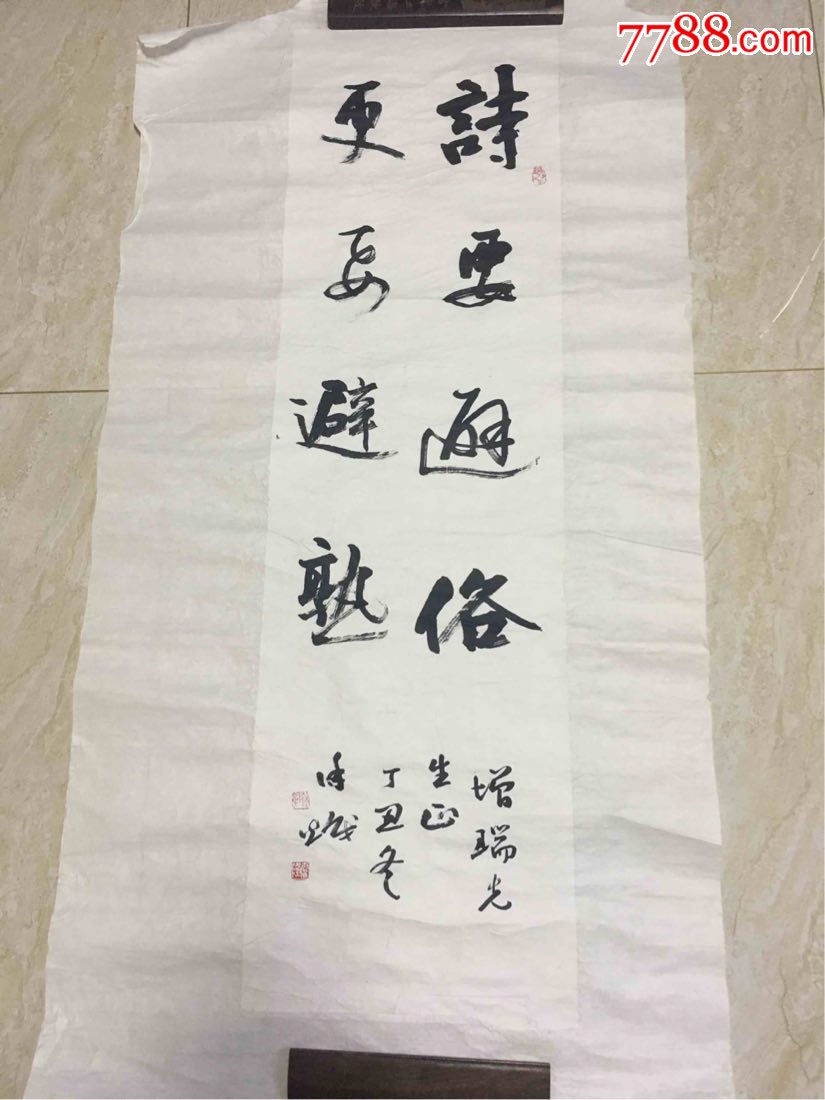 7788.com
詩要避俗
更要避熟
增瑞光
生正
丁丑冬